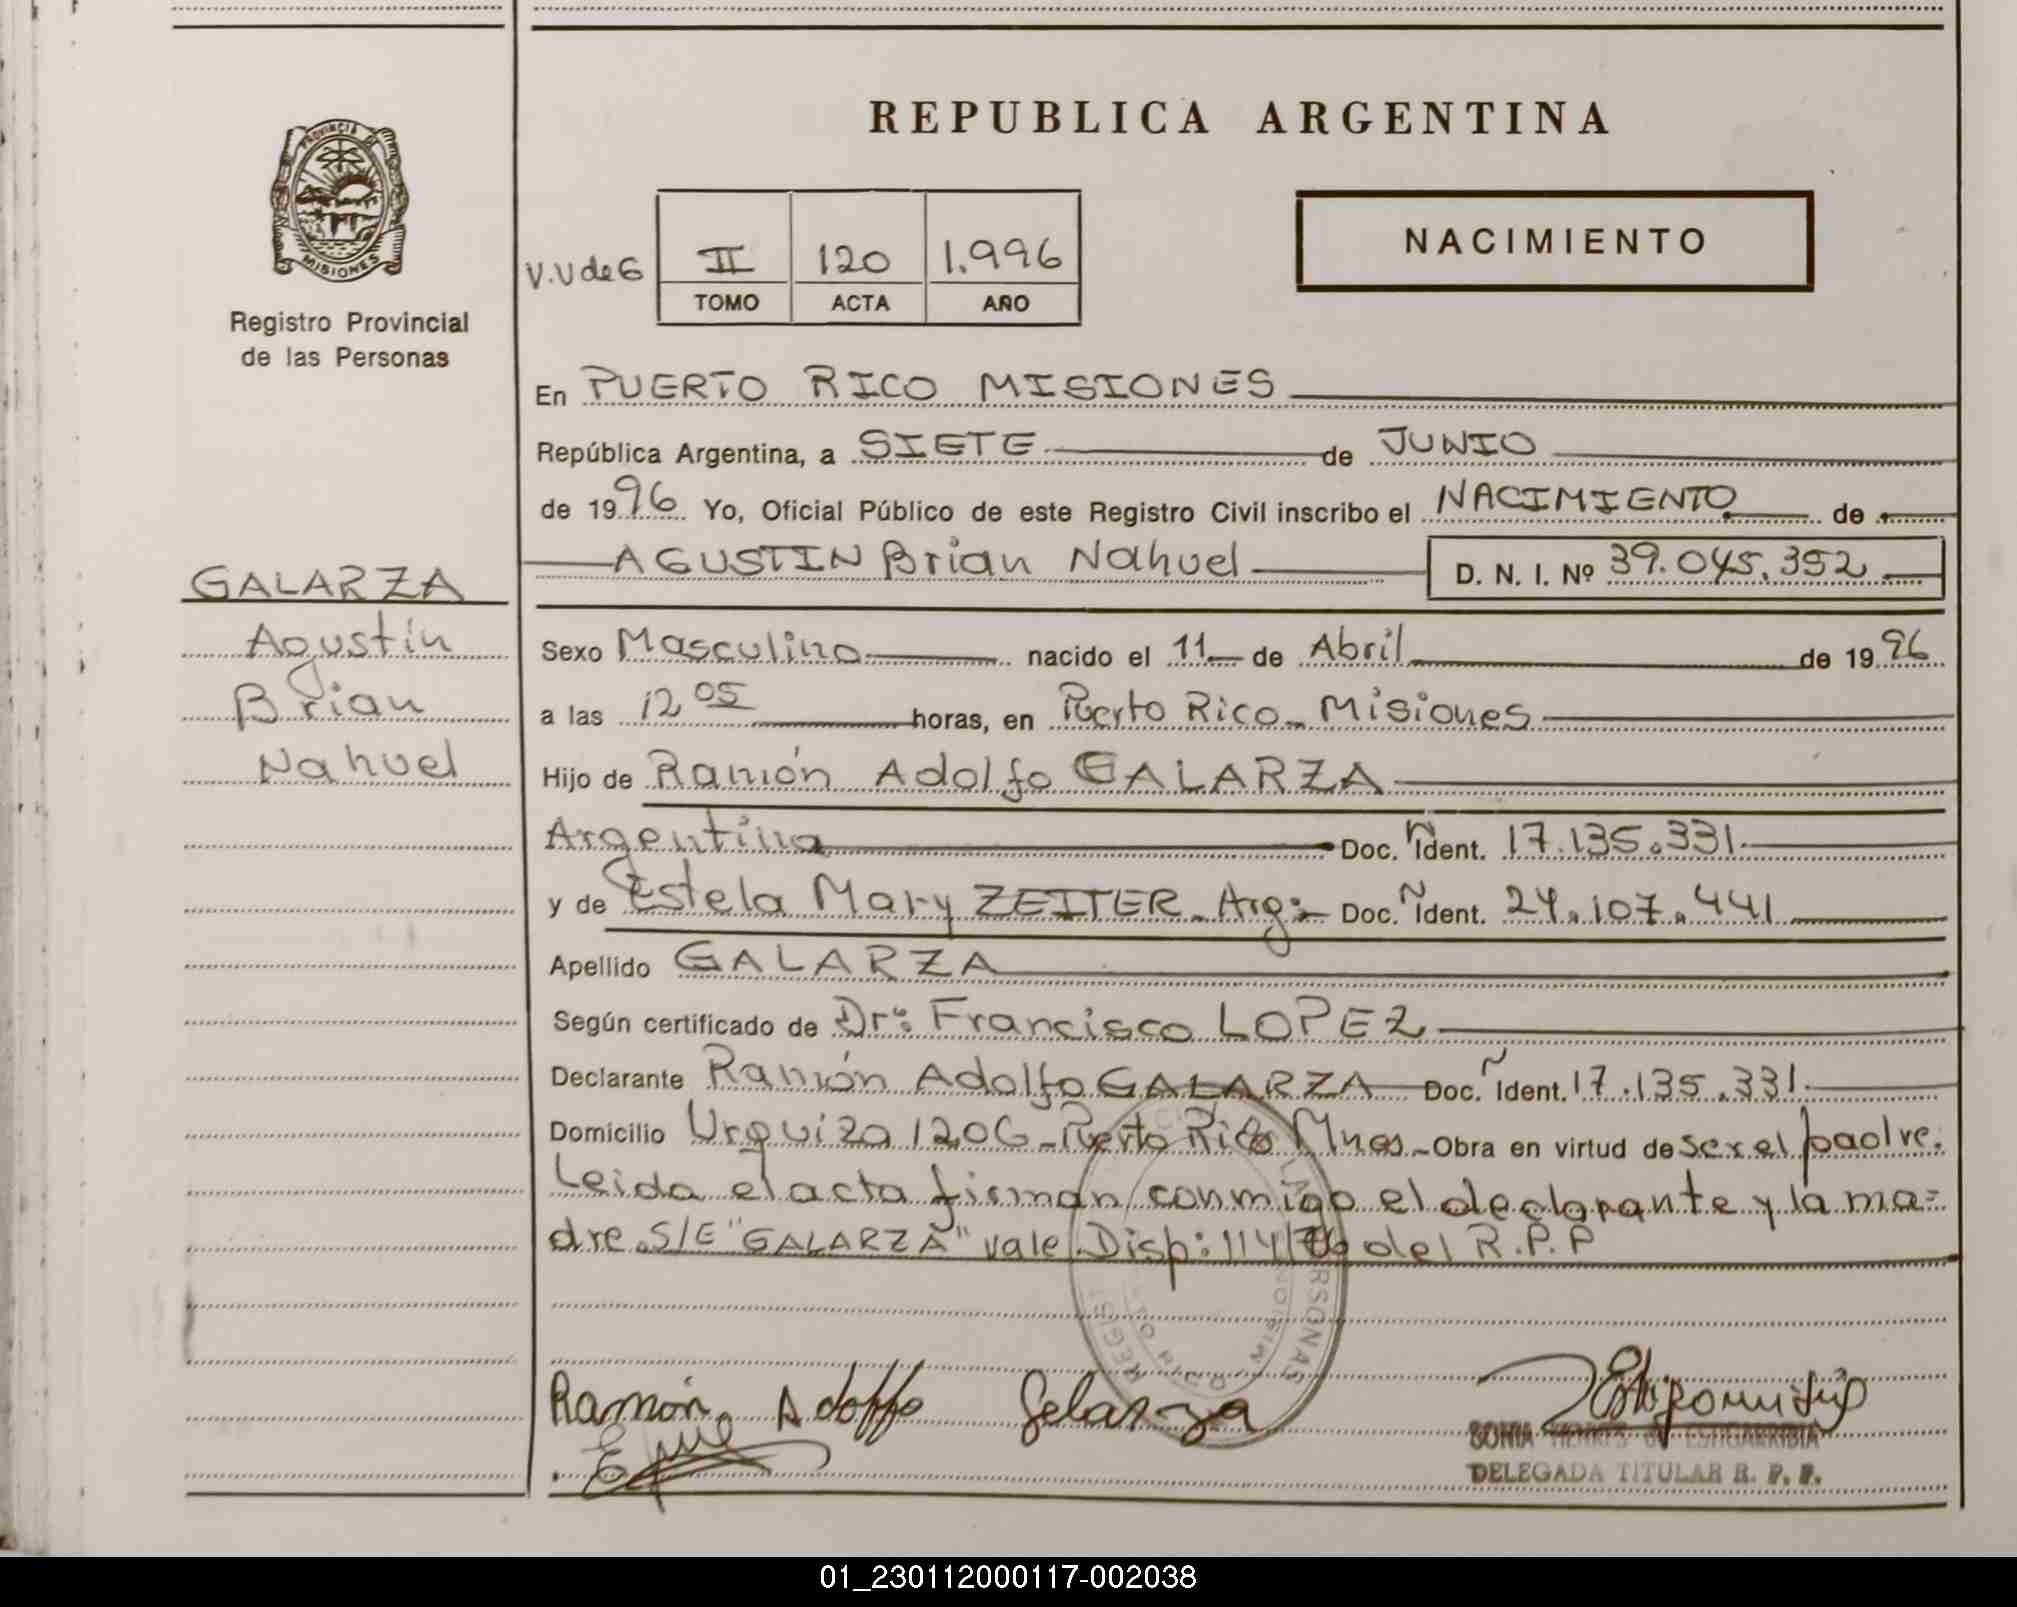 REPUBLICA ARGENTINA
PROVINCIA DE
MISIONES
Registro Provincial
de las Personas
V.V de G
II 120 1.996
TOMO ACTA AÑO
NACIMIENTO
En PUERTO RICO MISIONES
República Argentina, a SIETE de JUNIO
de 1996 Yo, Oficial Público de este Registro Civil inscribo el NACIMIENTO de
AGUSTIN Brian Nahuel D. N. I. Nº 39.045.352
GALARZA
Agustín
Brian
Nahuel
Sexo Masculino nacido el 11 de Abril de 1996
a las 12 05 horas, en Puerto Rico - Misiones
Hijo de Ramón Adolfo GALARZA
Argentina Doc. Ident. 17.135.331
y de Estela Mary ZEITER - Arg: Doc. Ident. 24.107.441
Apellido GALARZA
Según certificado de Dr: Francisco LOPEZ
Declarante Ramón Adolfo GALARZA Doc. Ident. 17.135.331.
Domicilio Urquiza 1206 - Puerto Rico Mnes - Obra en virtud de ser el padre.
Leida el acta firman conmigo el declarante y la ma=
dre. S/E "GALARZA" vale. Disp: 114/76 del R.P.P
Ramón Adolfo Galarza
SONIA HENNES DE ESTIGARRIBIA
DELEGADA TITULAR R. P. P.
01_230112000117-002038